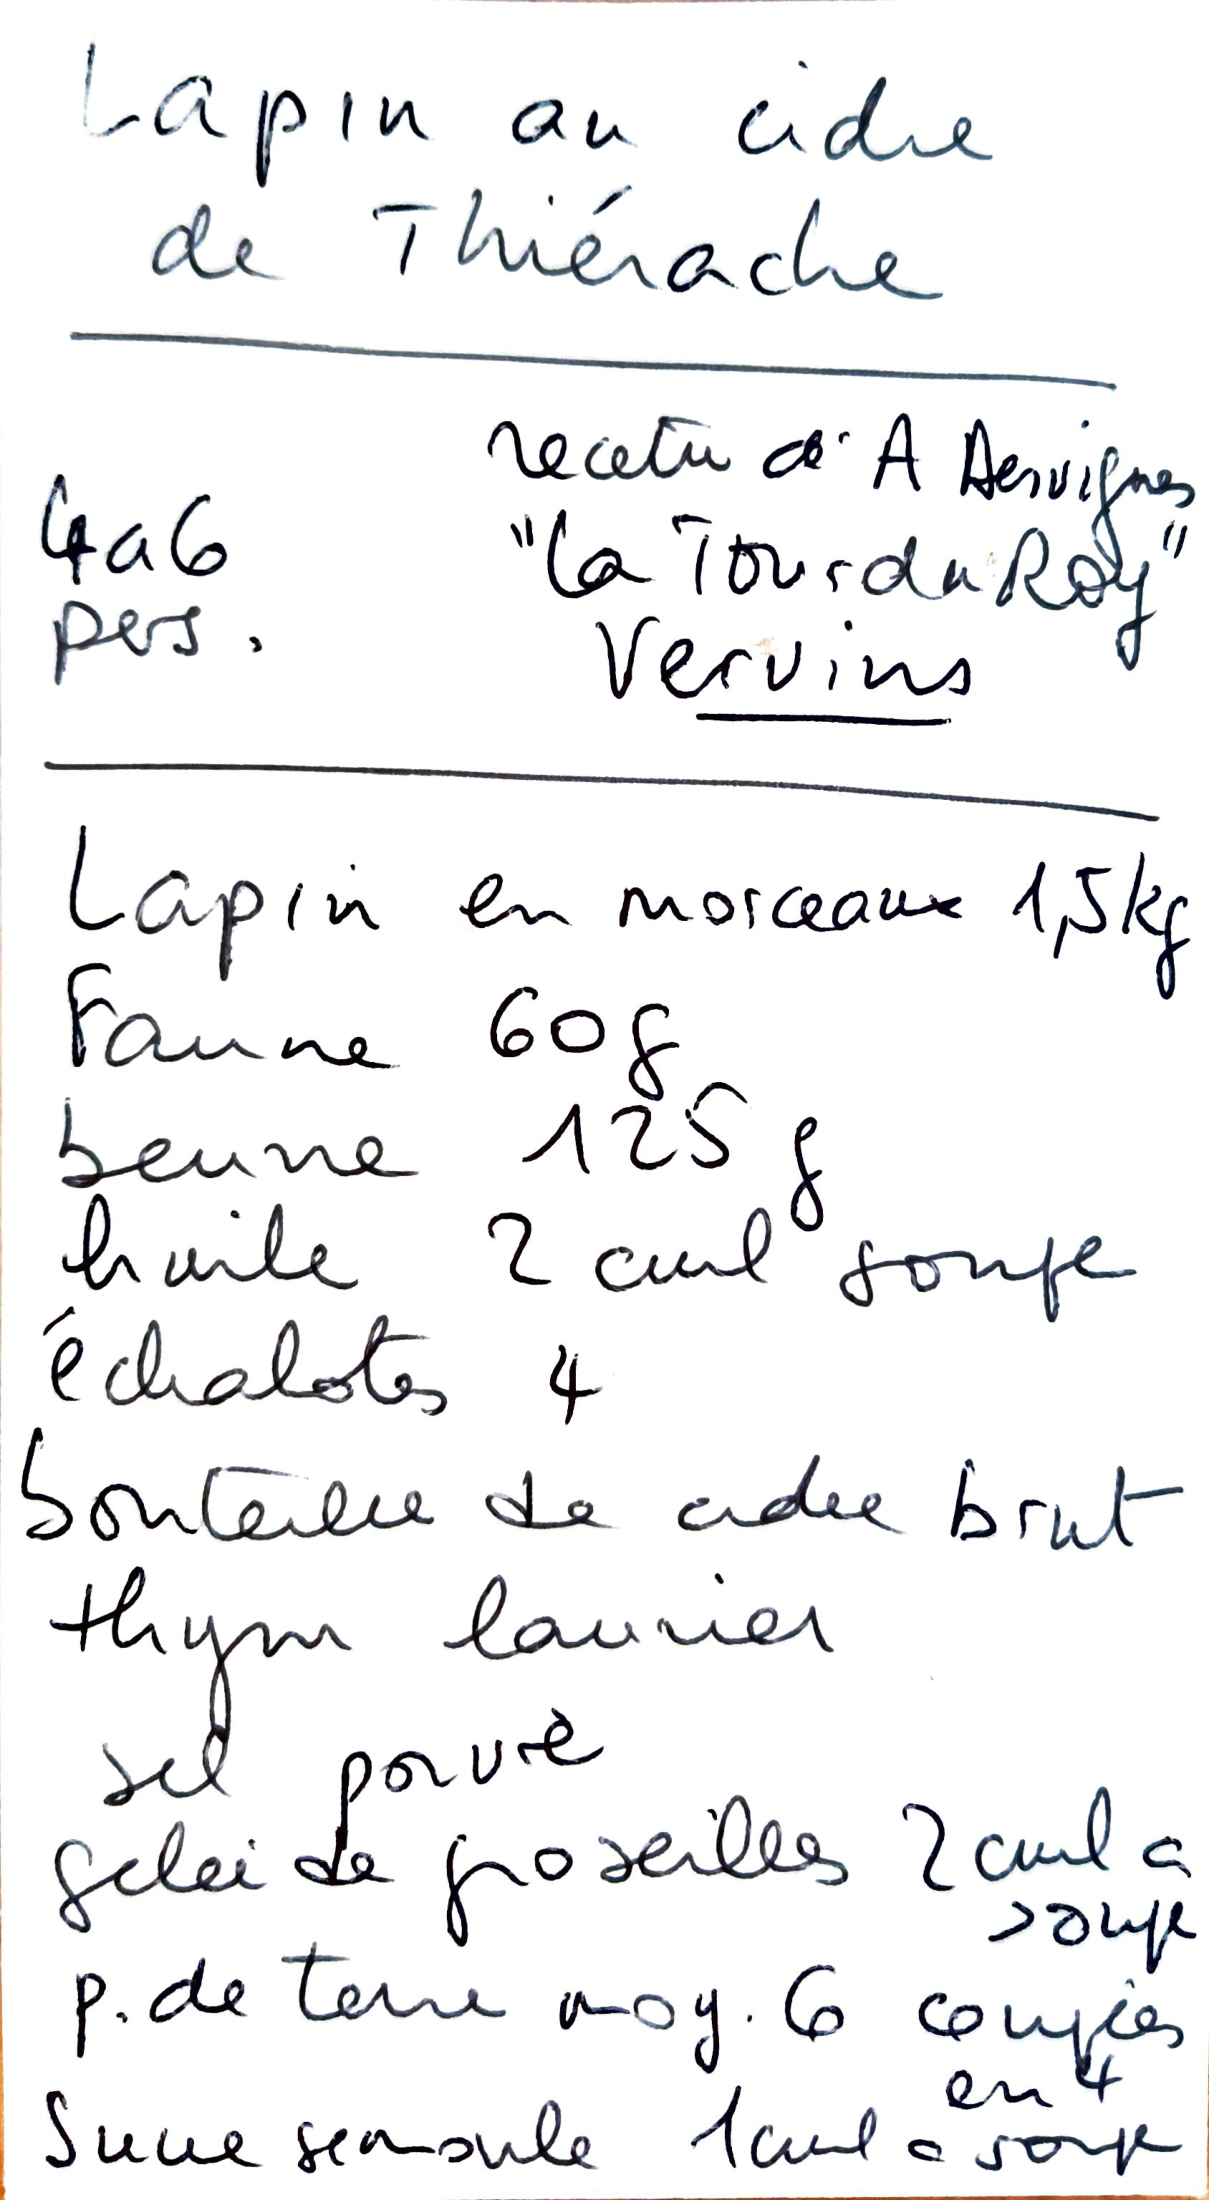 Lapin au cidre
de Thiérache
recette d'A Desvignes
"La Tour du Roy"
Vervins
4 a 6
pers.
Lapin en morceaux 1,5kg
Farine 60g
beurre 125 g
huile 2 cuil soupe
échalotes 4
bouteille de cidre brut
thym laurier
sel poivre
gelée de groseilles 2 cuil a
soupe
p. de terre moy. 6 coupées
en 4
Sucre semoule 1 cuil a soupe